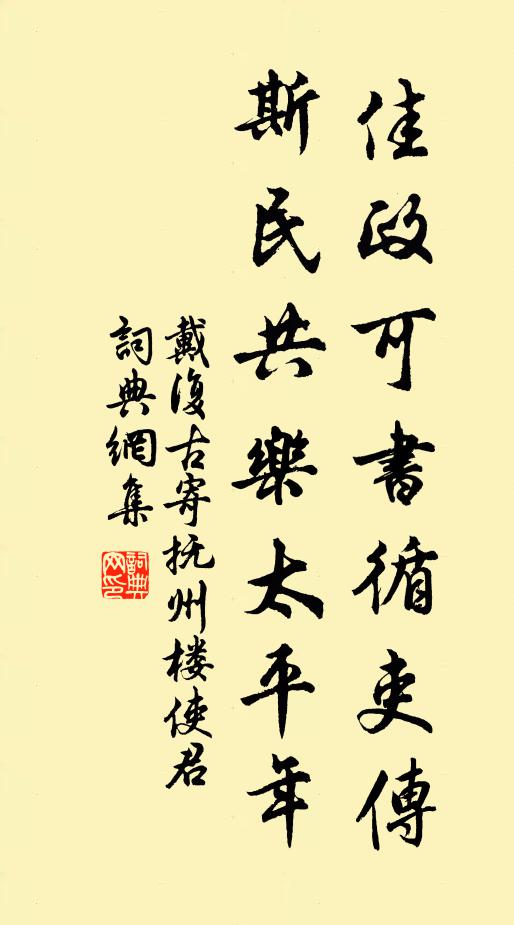 佳政可書循吏傳
斯民共樂太平年
戴復古寄抚州楼使君
詞典網集
詞典網印